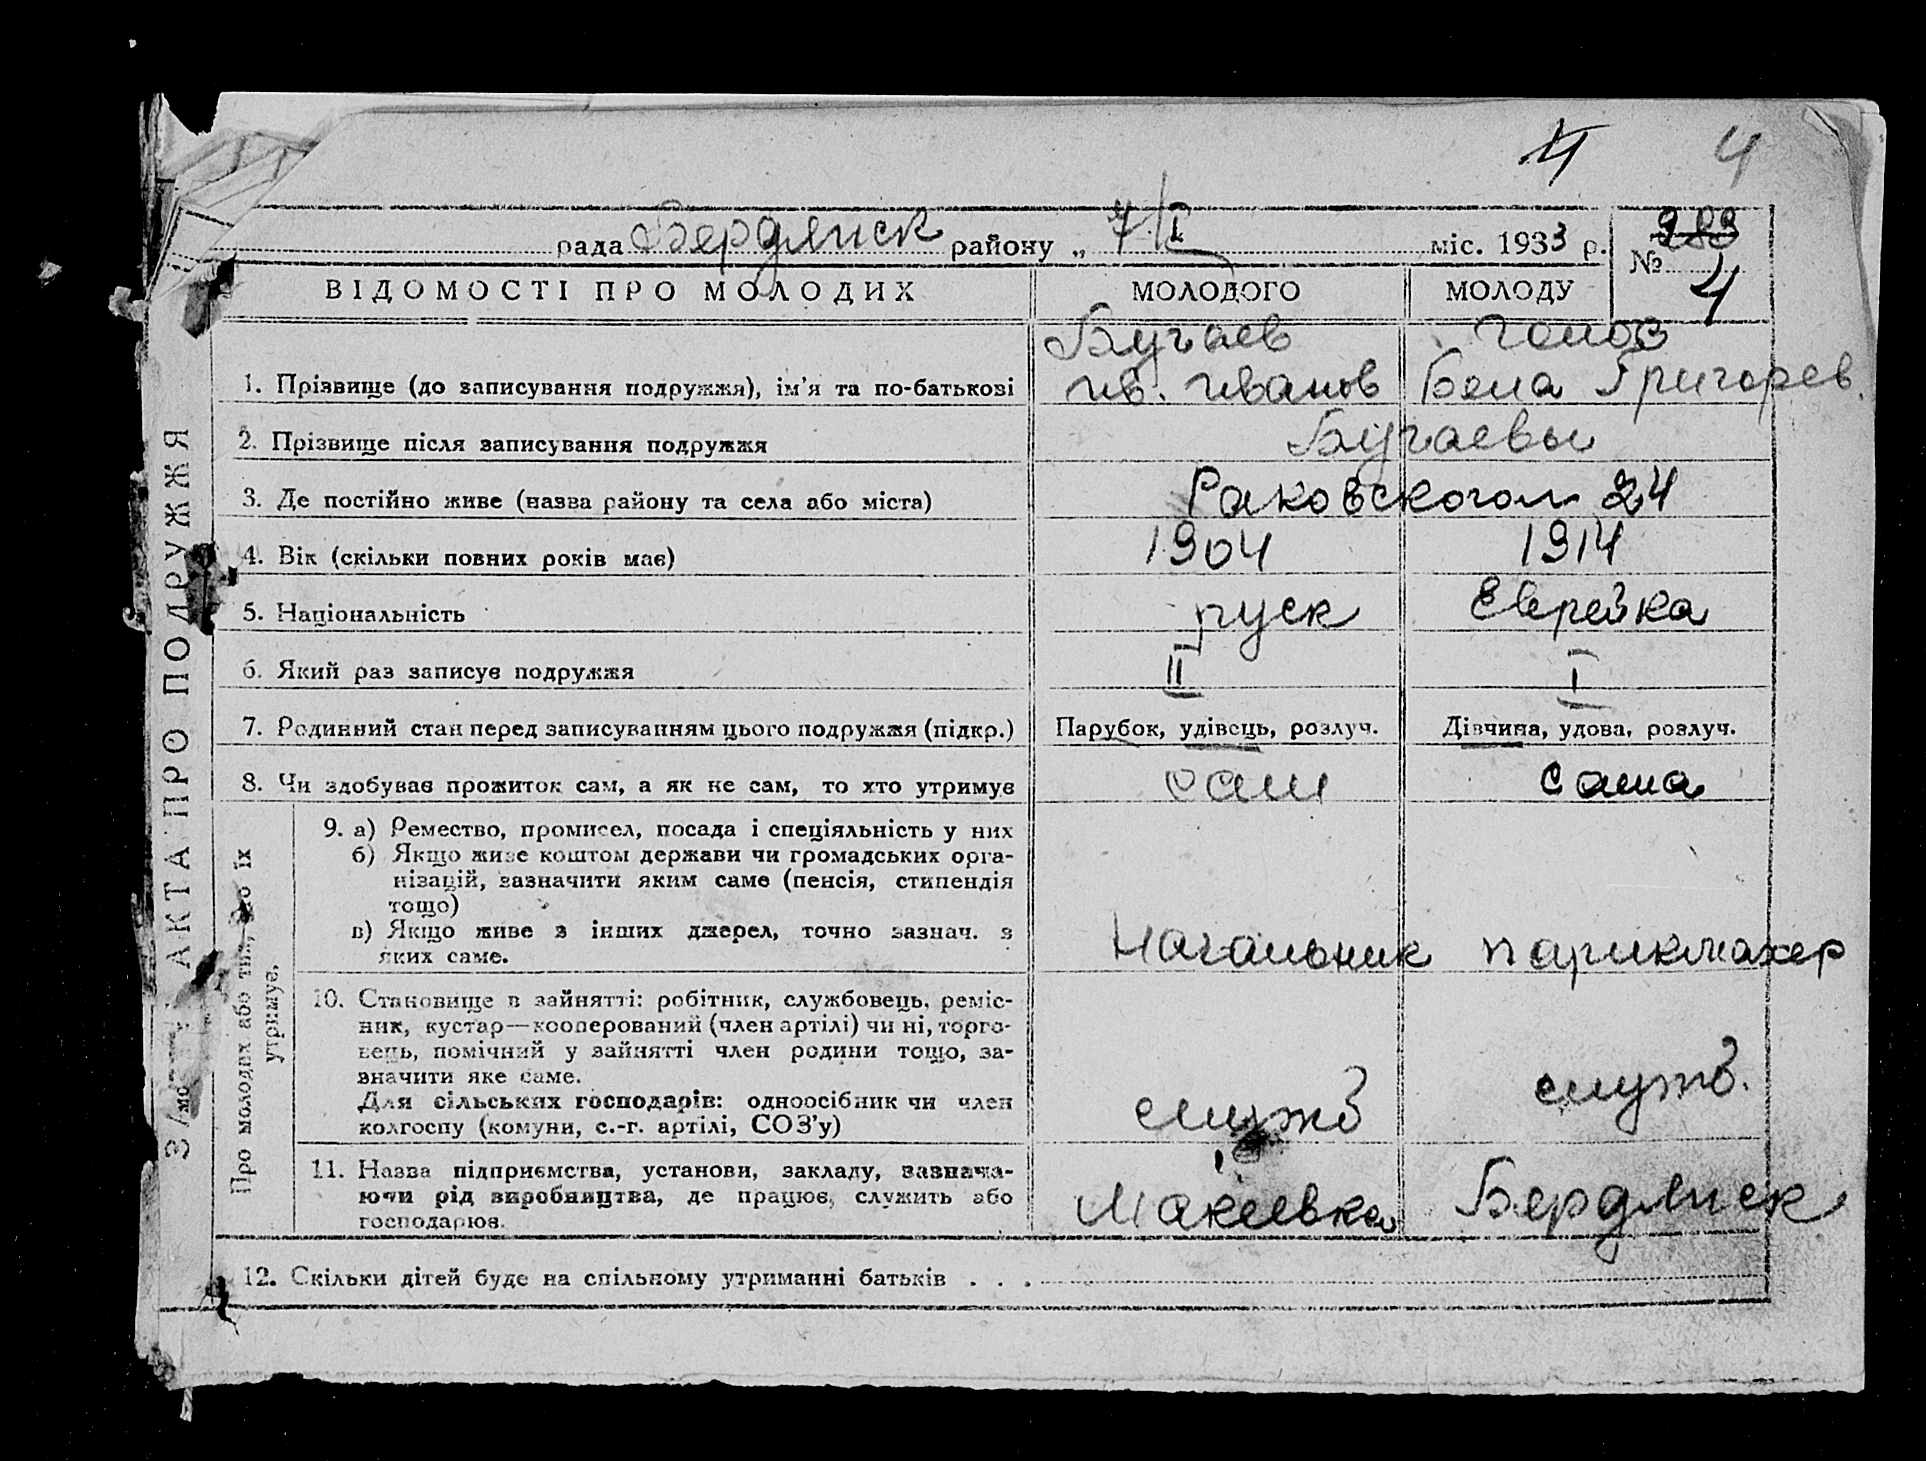 4 4
рада Бердянск району „ 7/I міс. 1933 р.
283
№ 4
ВІДОМОСТІ ПРО МОЛОДИХ МОЛОДОГО МОЛОДУ
Бугаев
1. Прізвище (до записування подружжя), ім'я та по-батькові Ив. Иванов Бела Григорев.
2. Прізвище після записування подружжя Бугаевы
3. Де постійно живе (назва району та села або міста) Раковского 24
4. Вік (скільки повних років має) 1904 1914
5. Національність руск Еврейка
6. Який раз записує подружжя II I
7. Родинний стан перед записуванням цього подружжя (підкр.) Парубок, удівець, розлуч. Дівчина, удова, розлуч.
8. Чи здобуває прожиток сам, а як не сам, то хто утримує сам сама
9. а) Ремество, промисел, посада і спеціяльність у них
б) Якщо живе коштом держави чи громадських орга-
нізацій, зазначити яким саме (пенсія, стипендія
тощо)
в) Якщо живе з інших джерел, точно зазнач. з
яких саме. Начальник парикмахер
10. Становище в зайнятті: робітник, службовець, реміс-
ник, кустар—кооперований (член артілі) чи ні, торго-
вець, помічний у зайнятті член родини тощо, за-
значити яке саме.
Для сільських господарів: одноосібник чи член
колгоспу (комуни, с.-г. артілі, СОЗ'у) служб служб.
11. Назва підприємства, установи, закладу, зазнача-
ючи рід виробництва, де працює, служить або
господарює. Макеевка Бердянск
12. Скільки дітей буде на спільному утриманні батьків . . .
Про молодих або тих, що їх
утримує.
АКТА ПРО ПОДРУЖЖЯ